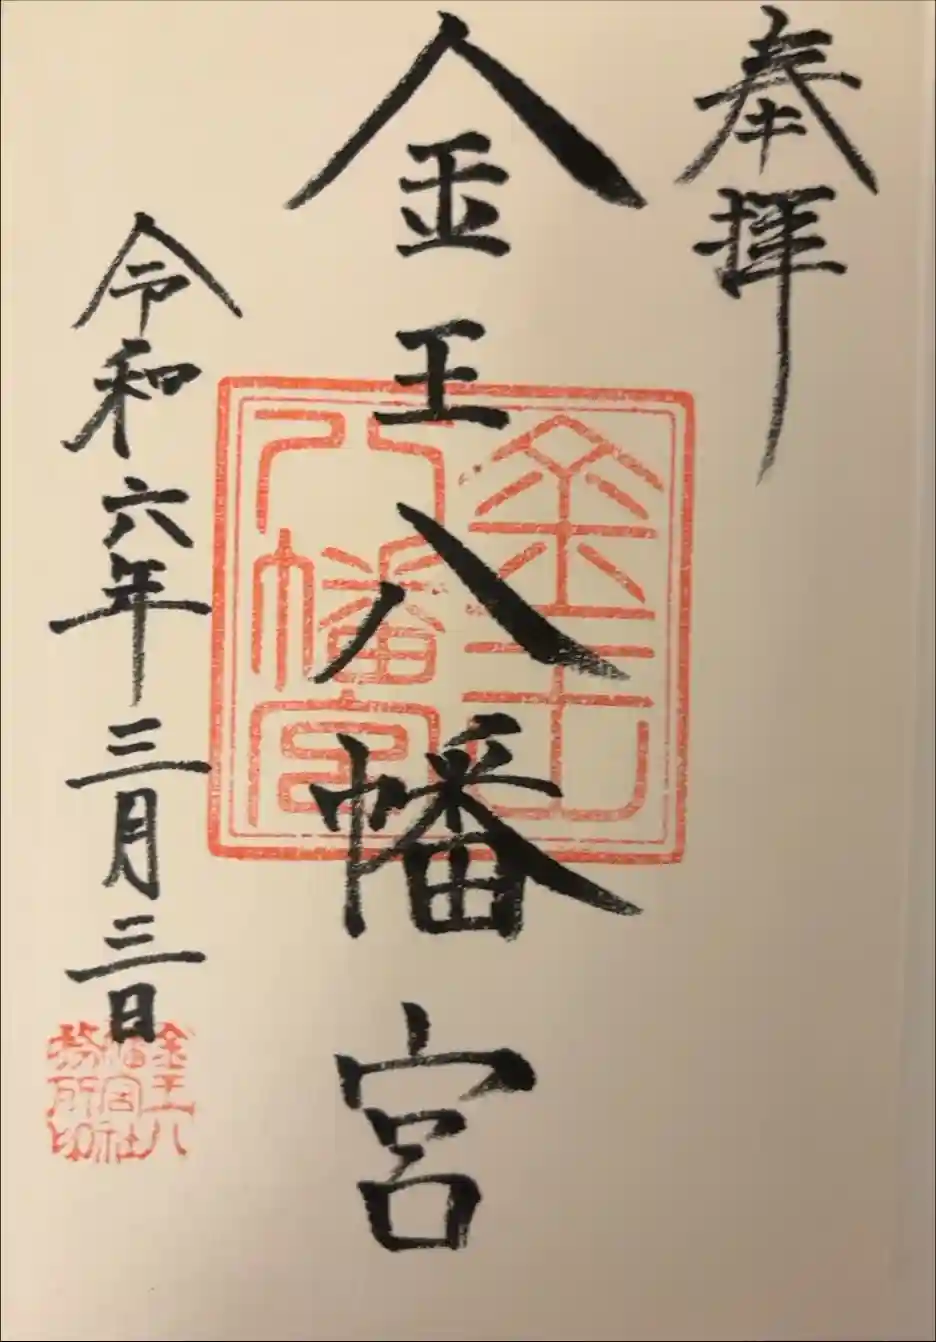 奉拝
金王八幡宮
金王八幡宮
令和六年三月三日
金王八幡宮社務所印